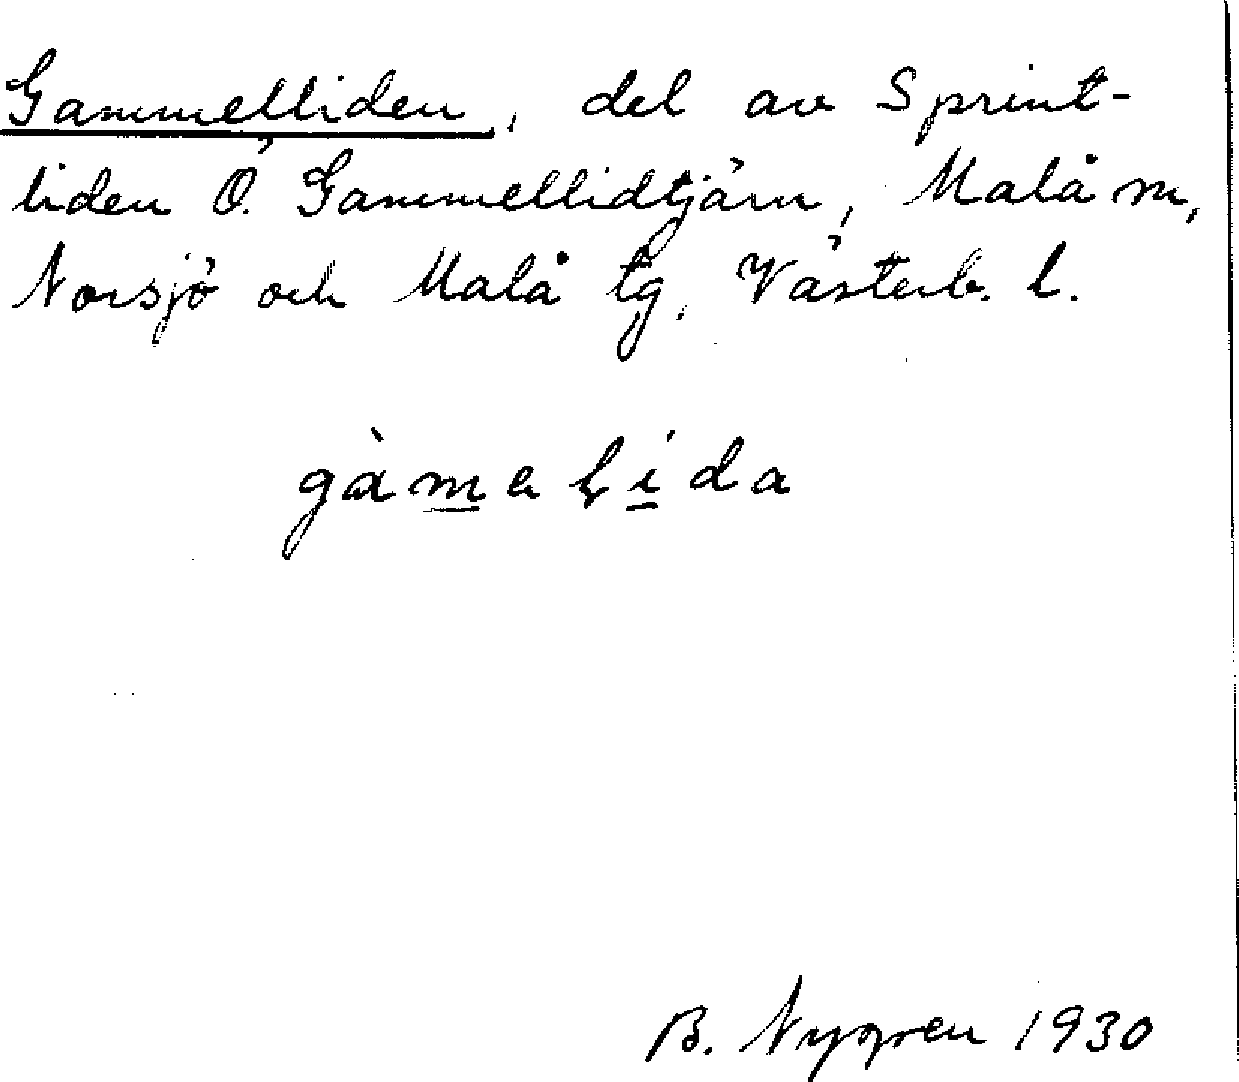 Gammelliden, del av Sprint-
liden Ö. Gammellidtjärn, Malå sn,
Norsjö och Malå tg, Västerb. l.
gàmeḷída
B. Nygren 1930